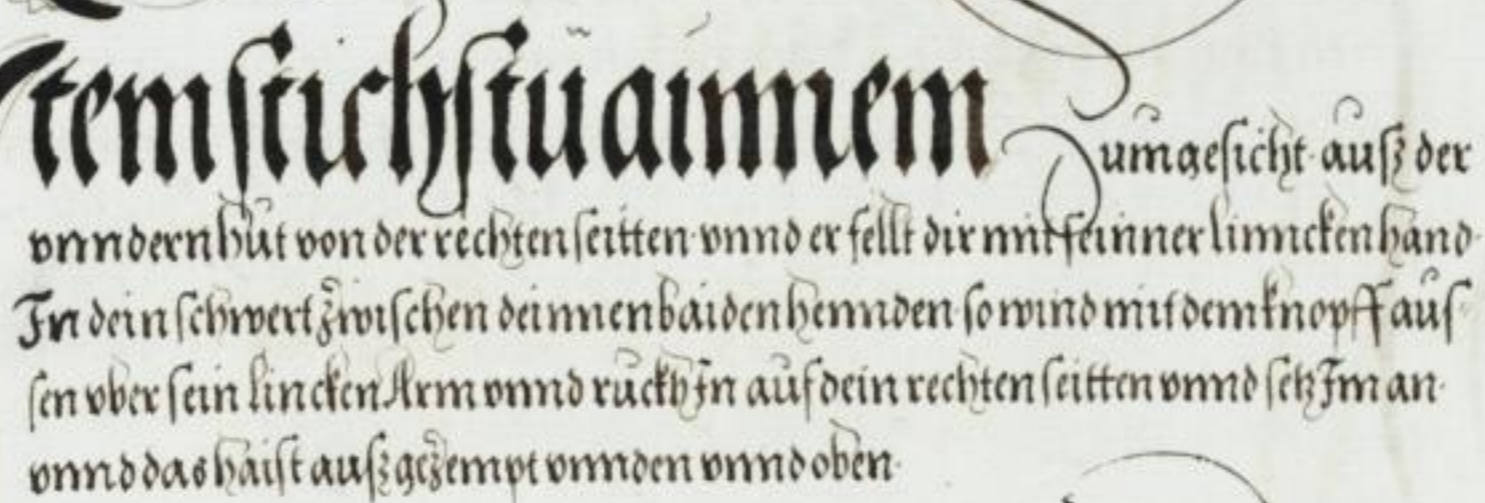 Item stichstu ainnem Zum gesicht ausz der
vnndern hůt von der rechten seitten vnnd er fellt dir mit seinner linncken hand
In dein schwert zwischen deinnen baiden hennden so wind mit dem knopff aus
sen vber sein lincken Arm vnnd ruckh In auf dein rechten seitten vnnd setz Im an
vnnd das haist ausz gezempt vnnden vnnd oben